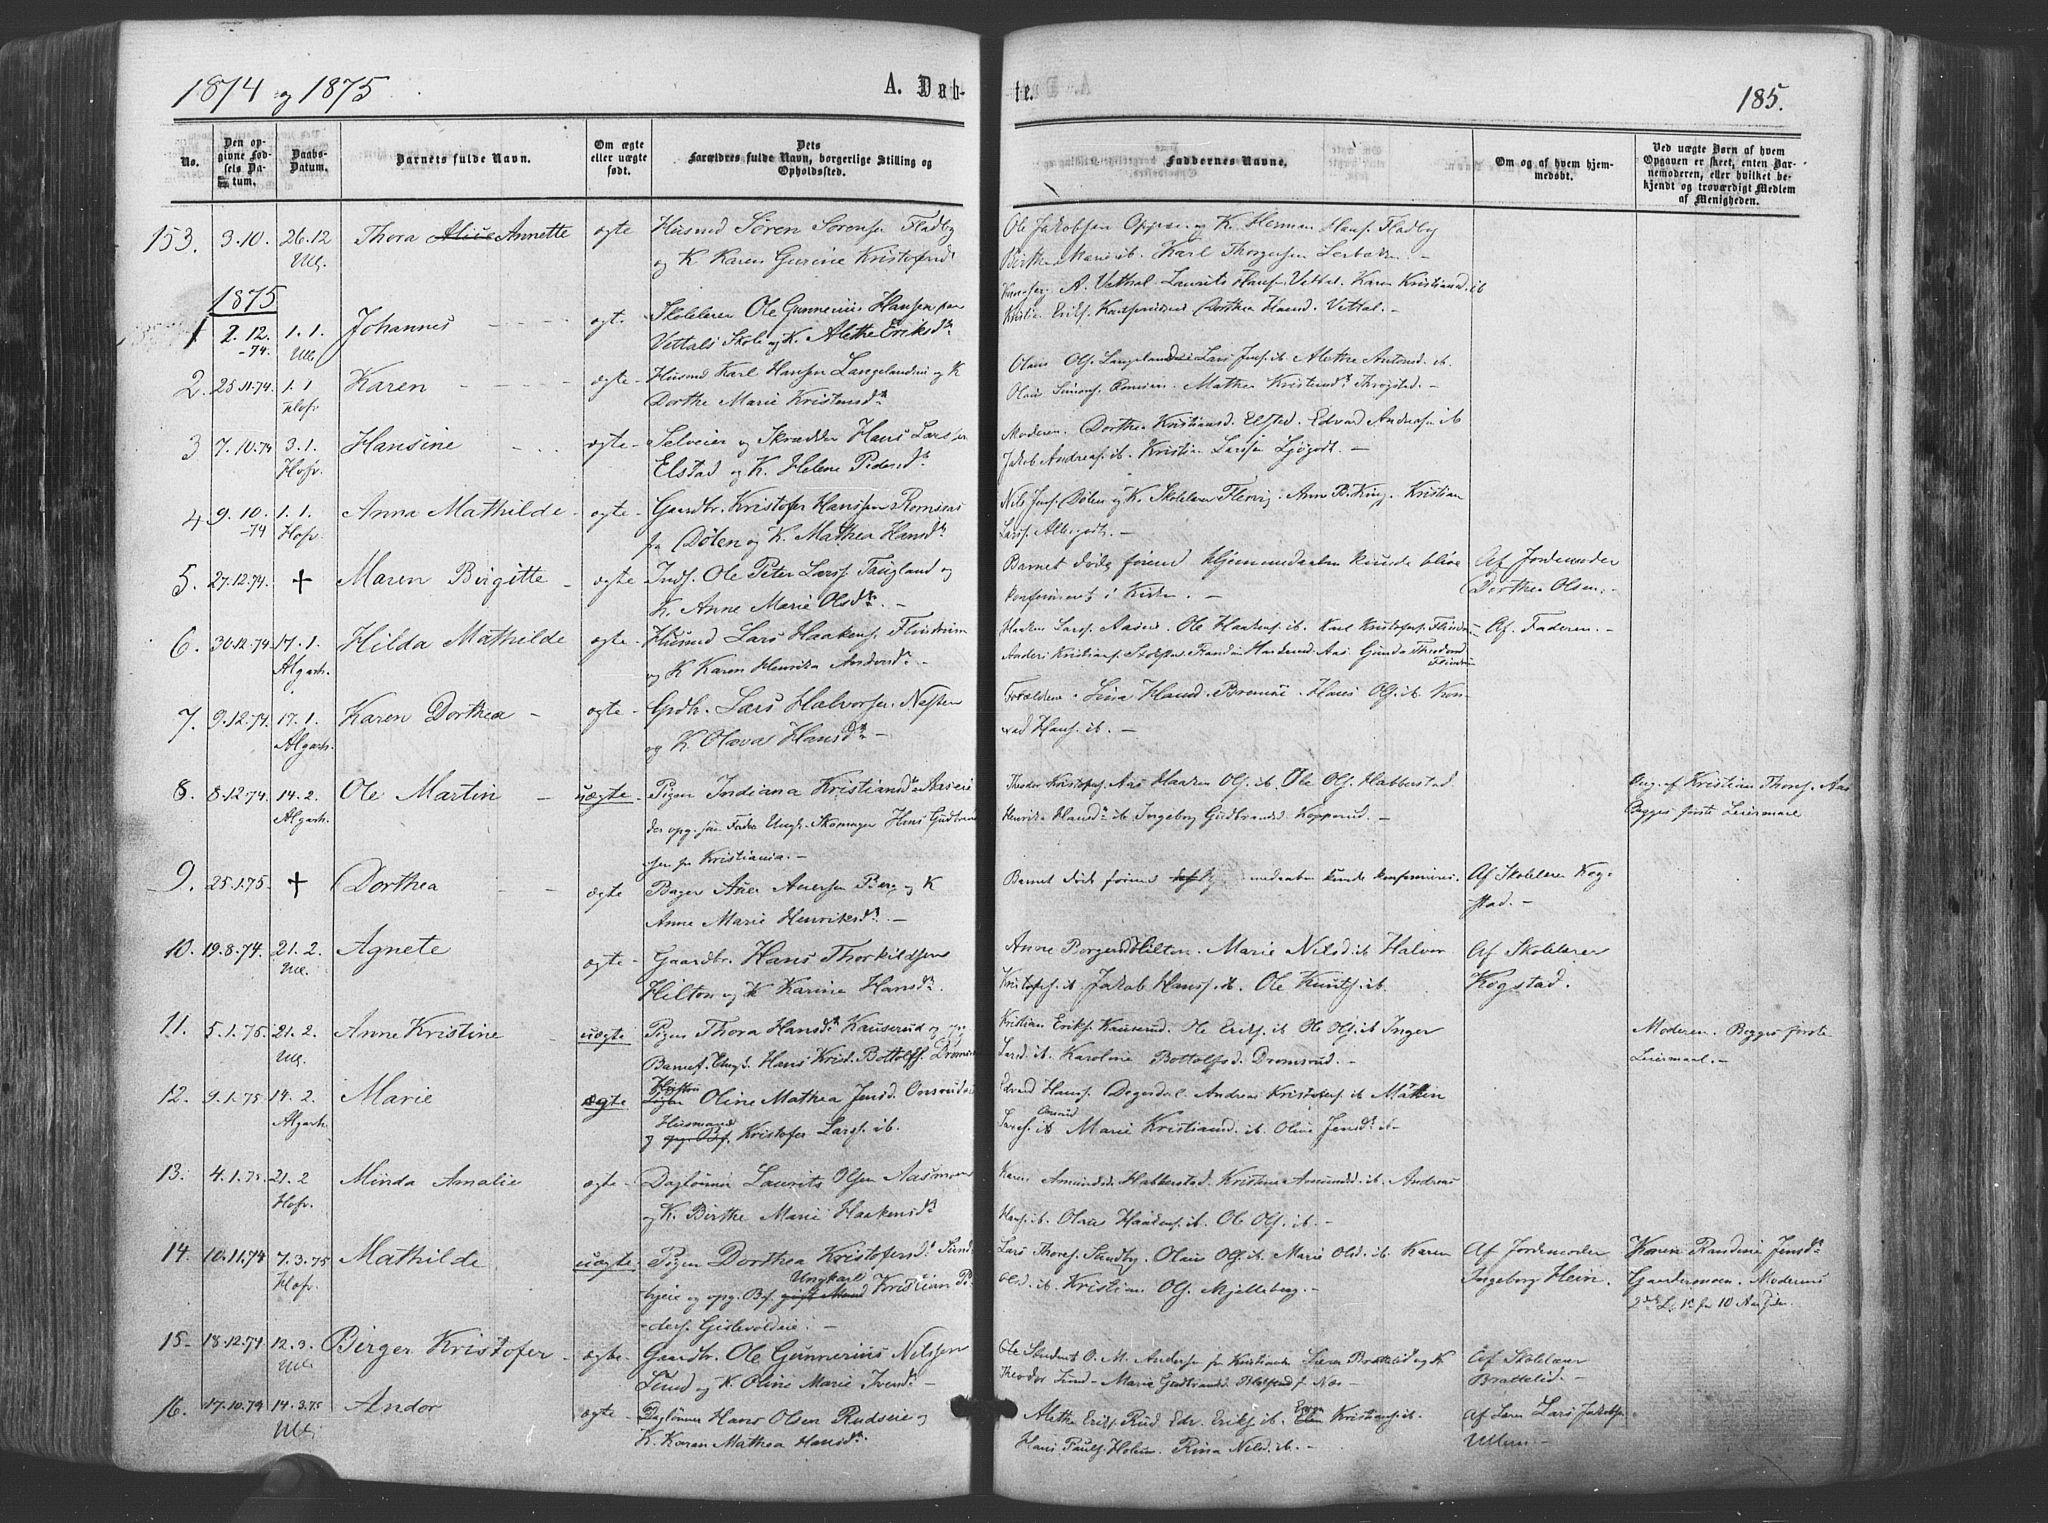 1874 og 1875
A. Døb-
te.
185.
No.
Den op-
givne Fød-
sels Da-
tum.
Daabs-
Datum.
Barnets fulde Navn.
Om ægte
eller uægte
født.
Dets
Forældres fulde Navn, borgerlige Stilling og
Opholdssted.
Faddernes Navne.
Om og af hvem hjem-
medøbt.
Ved uægte Børn af hvem
Opgaven er skeet, enten Bar-
nemoderen, eller hvilket be-
kjendt og troværdigt Medlem
af Menigheden.
153. 3.10. 26.12 Thora Alise Annette ægte Husmd Sören Sörensen Fladby
Ull. og K. Karen Gurine Kristofersd.
Ole Jakobsen og K. Herman Hans. Fladby
Birthe Marie ib. Karl Thorgersen
1875
1 2.12. 1.1. Johannes ægte Skolelærer Ole Gunnerius Hansen paa
-74. Ull. Vettals Skole og K. Alethe Eriksdr.
A. Vethal Laurits Hansen Vettal. Karen Kristiansd. ib
Dorthea Hansd. Vettal.
2. 25.11.74. 1.1 Karen ægte Husmd Karl Hansen Langelandsei og K
Hofv. Dorthe Marie Kristensdr.
Olaus Ols. Langelandsei Lars Jens. ib. Alethe Antonsd. ib.
Olaus Simens. Mathea Kristensdr. Throgstad.
3 7.10.74 3.1. Hansine ægte Selveier og Skrædder Hans Larsen
Hofv. Elstad og K. Helene Pedersdr.
Moderen. Dorthea Kristiansd. Elsted. Edvard Andreas. ib
Jakob Andreas. ib. Kristian Larsen Ljøgodt.
4 9.10. 1.1. Anna Mathilde ægte Gaardbr. Kristofer Hanssen Romsaas
-74 Hofv. fr Dølen og K. Mathea Hansdr.
Nils Jens. Dølen og K. Skolelærer Flervig. Anne B. King. Kristian
Lars. Algergodt.
5. 27.12.74. + Maren Birgitte ægte Inds. Ole Peter Lars. Taugland og
K. Anne Marie Olsdr.
Barnet døde førend Hjemmedaaben kunde blive
konfirmeret i Kirken. Af Jordemoder
Dorthea Olsen.
6. 30.12.74 17.1. Hilda Mathilde ægte Husmd Lars Haakens. Flindrum
Algarh. og K Karen Henrikka Andersdr.
Haaken Lars. Ole Haakens. ib. Karl Kristofers. Flindrum Af Faderen.
7. 9.12.74. 17.1. Karen Dorthea ægte Grdbr. Lars Halvorsen Nesten
Algarh. og K Olava Hansdr.
Forældrene. Lina Hansd. Hans Ols. ib. Kon-
rad Hans. ib.
8. 8.12.74. 14.2. Ole Martin uægte Pigen Indiana Kristiansdr. Aaseie
Algarh. der opg. som Fader Ungk. Skomager Hans Gudbrand-
sen fr Kristiania.
Theodor Kristofers. Aas Haaken Ols. ib. Ole Ols. Habberstad
Henrikka Hansdr ib. Ingeborg Gudbrandsd. Kopperud.
Opg. af Kristian Thores. Aas
Begges første Leiermaal
9. 25.1.75. + Dorthea ægte Bager Berg og K
Anne Marie Henriksdr.
Barnet døde førend medaaben kunde konfirmeres. Af Skolelærer Kog-
stad.
10. 19.8.74. 21.2. Agnete ægte Gaardbr. Hans Thorkildsen
Ull. Hilton og K Karine Hansdr.
Anne Borgersd Hilton. Marie Nilsd. ib Halvor
Kristofers. ib. Jakob Hanss. ib. Ole Knuts. ib.
Af Skolelærer
Kogstad.
11. 5.1.75. 21.2. Anne Kristine uægte Pigen Thora Hansdr. Kauserud og
Ull. Barnef. Ungk. Hans Krist. Bottolfs.
Kristian Eriks. Kauserud. Ole Eriks. ib Ole Ols. ib Inger
Larsd. ib. Karoline Bottolfsd. Dromsrud.
Moderen. Begges første
Leiermaal.
12. 9.1.75 14.2. Marie ægte Pigen Oline Mathea Jensd. Onsrudeie
Algarh. Husmand
og opg. Bf. Kristofer Lars. ib.
Edvard Hans. Andreas Kristofers. ib
Lars. ib Onsrud Marie Kristiansd. ib. Oline Jensdr. ib.
13. 4.1.75. 21.2 Minda Amalie ægte Daglønner Laurits Olsen Aasmoen
Hofv. og K. Birthe Marie Haakensdr
Karen Amundsd. Habberstad. Kristine Amundsd. ib. Andreas
Hans. ib. Ole Ols. ib.
14. 10.11.74 7.3.75 Mathilde uægte Pigen Dorthea Kristofersdr. Sund-
Hofv. Ungkarl
byeie og opg. Bf. gift Mand Kristian Pe-
ders. Gislevoldeie.
Lars Thores. Sundby. Olaus Ols. ib. Marie Olsd. ib. Karen
Olsd. ib. Kristian Ols. Mjelleberg.
Af Jordemoder
Ingeborg Hein.
Karen Randine Jensdr.
Gaardermoen. Moderens
15. 18.12.74 12.3. Birger Kristofer ægte Gaardbr. Ole Gunnerius Nilssen
Ull. Sund og K. Oline Marie Iversdr.
Ole Student O. M. Andersen fr Kristiania Brattelid og K
Theodor Sund Marie Gudbrandsd.
Af Skolelærer
Brattelid.
16. 17.10.74 14.3.75 Andor ægte Daglønner Hans Olsen Rudseie og
Ull. K. Karen Mathea Hansdr.
Alethe Eriks. Rud. Edv. Eriks. ib. Kristians. ib.
Hans Pauls. Holum. Rina Nilsd. ib.
Af Lars Jakobsen
Ullern